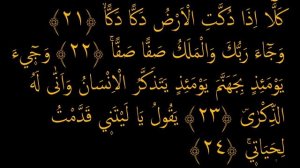 كَلَّا اِذَا دُكَّتِ الْاَرْضُ دَكًّا دَكًّاۙ ﴿٢١﴾
وَجَٓاءَ رَبُّكَ وَالْمَلَكُ صَفًّا صَفًّاۚ ﴿٢٢﴾ وَج۪ٓيءَ
يَوْمَئِذٍ بِجَهَنَّمَ يَوْمَئِذٍ يَتَذَكَّرُ الْاِنْسَانُ وَاَنّٰى لَهُ
الذِّكْرٰىۜ ﴿٢٣﴾ يَقُولُ يَا لَيْتَن۪ي قَدَّمْتُ
لِحَيَات۪يۚ ﴿٢٤﴾